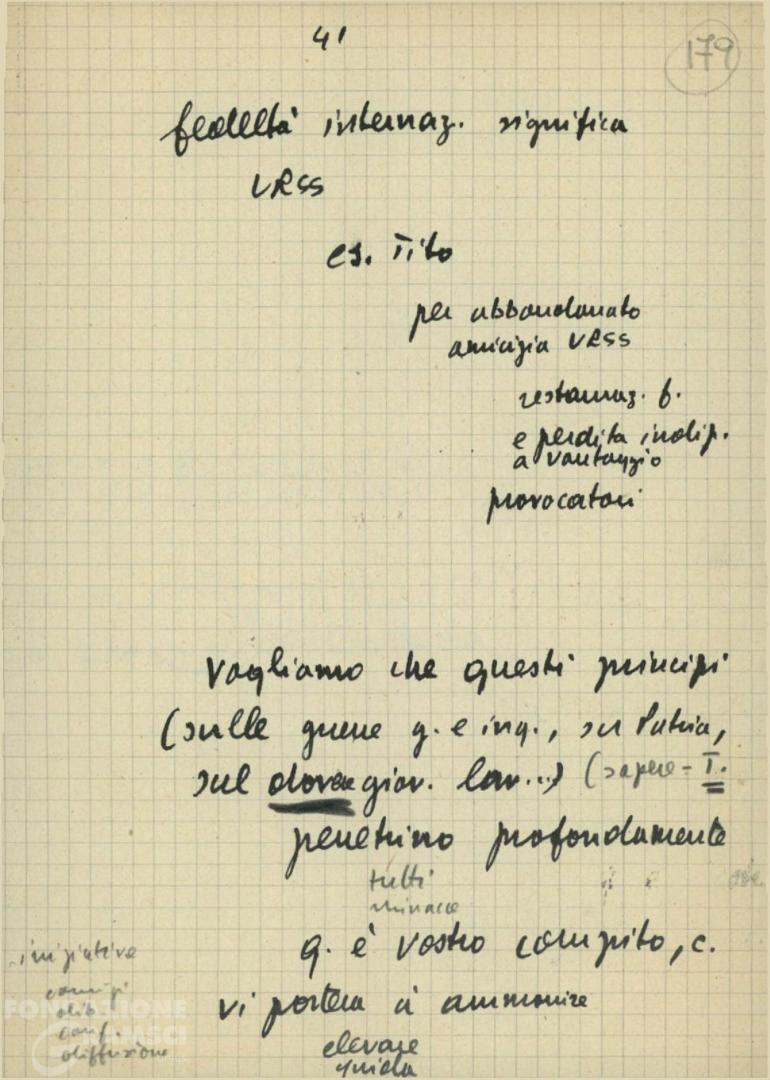 41
179
fedeltà internaz. significa
URSS
es. Tito
per abbandonato
amicizia URSS
restauraz. b.
e perdita indip.
a vantaggio
provocatori
Vogliamo che questi principi
(sulle guerre g. e ing., su Patria,
sul dovere giov. lav...) (sapere = I.
penetrino profondamente
tutti
minacce
q. è vostro compito, c.
iniziative
vi porterà a ammonire
dib.
conf.
diffusione
elevare
guida
FONDAZIONE
GRAMSCI